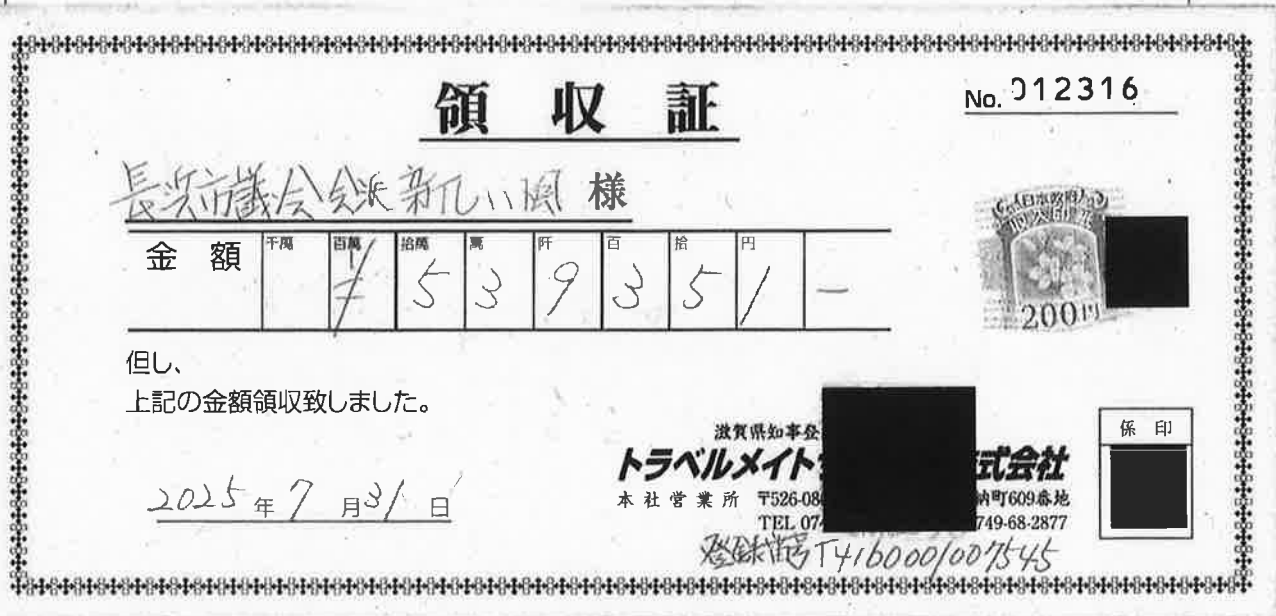 領収証
No. 012316
長浜市議会会派新しい風 様
金額 千萬 百萬 拾萬 萬 阡 百 拾 円
¥ 5 3 9 3 5 1 —
日本政府
収入印紙
200円
但し、
上記の金額領収致しました。
2025年7月31日
滋賀県知事登
トラベルメイト 式会社
本社営業所 〒526-08 納町609番地
TEL 07 749-68-2877
登録番号T4160001007545
係印